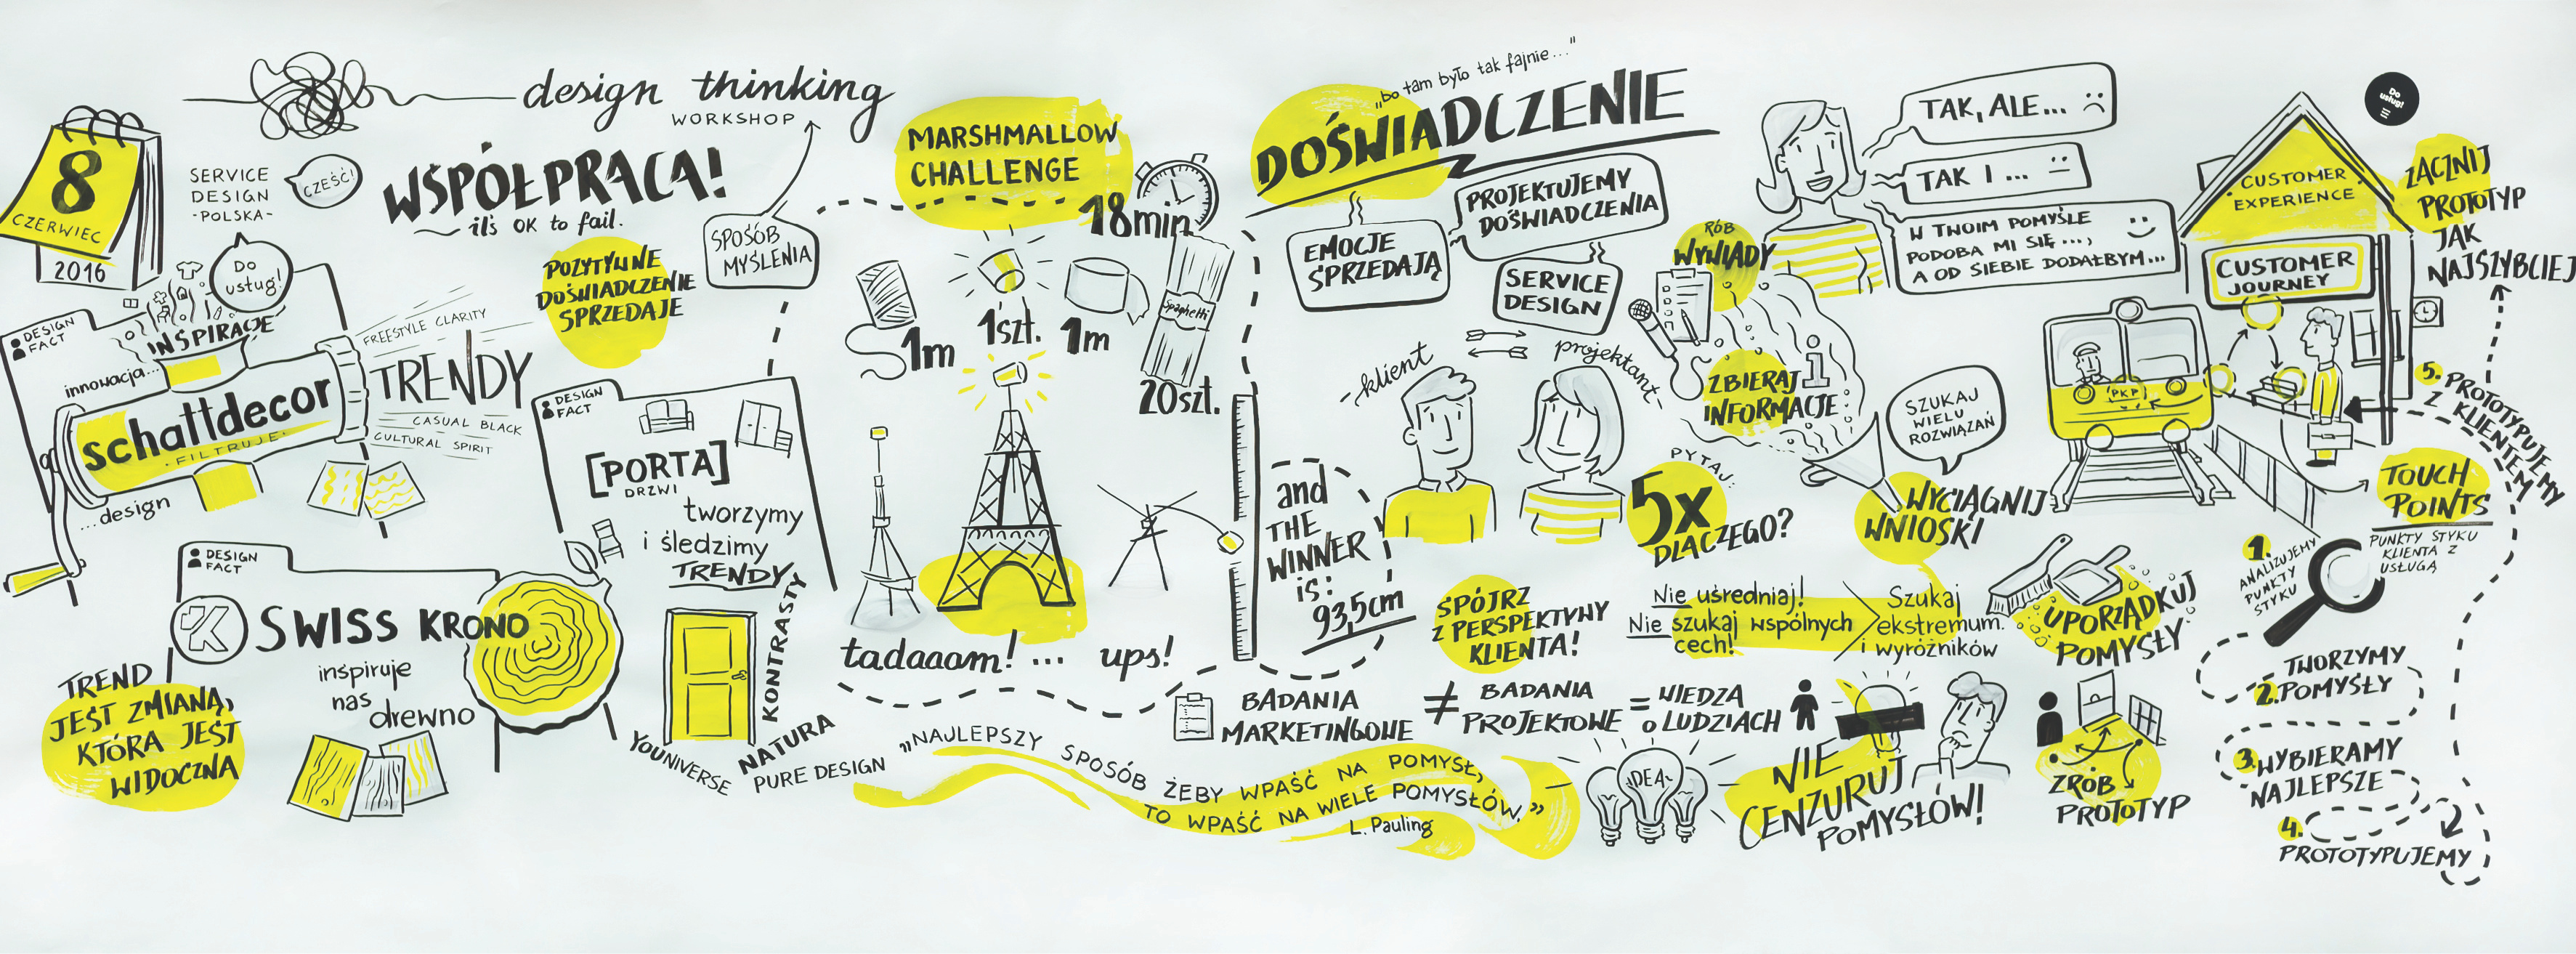 design thinking
WORKSHOP
8
CZERWIEC
2016
SERVICE
DESIGN
-POLSKA-
CZEŚĆ!
WSPÓŁPRACA!
it's OK to fail.
SPOSÓB
MYŚLENIA
POZYTYWNE
DOŚWIADCZENIE
SPRZEDAJE
Do
usług!
DESIGN
FACT
INSPIRACJE
innowacja...
schattdecor
·FILTRUJE·
...design
FREESTYLE CLARITY
TRENDY
CASUAL BLACK
CULTURAL SPIRIT
DESIGN
FACT
[PORTA]
DRZWI
tworzymy
i śledzimy
TRENDY
KONTRASTY
NATURA
YOUNIVERSE
PURE DESIGN
DESIGN
FACT
K
SWISS KRONO
inspiruje
nas
drewno
TREND
JEST ZMIANĄ,
KTÓRA JEST
WIDOCZNA
MARSHMALLOW
CHALLENGE
18min
1m
1szt.
1m
Spaghetti
20szt.
tadaaam! ... ups!
and
THE
WINNER
is:
93,5cm
„bo tam było tak fajnie..."
DOŚWIADCZENIE
EMOCJE
SPRZEDAJĄ
PROJEKTUJEMY
DOŚWIADCZENIA
SERVICE
DESIGN
-klient
projektant-
RÓB
WYWIADY
ZBIERAJ
INFORMACJE
i
PYTAJ:
5x
DLACZEGO?
SZUKAJ
WIELU
ROZWIĄZAŃ
WYCIĄGNIJ
WNIOSKI
TAK, ALE...
TAK I ...
W TWOIM POMYŚLE
PODOBA MI SIĘ...,
A OD SIEBIE DODAŁBYM...
SPÓJRZ
Z PERSPEKTYWY
KLIENTA!
Nie uśredniaj!
Nie szukaj wspólnych
cech!
Szukaj
ekstremum
i wyróżników
UPORZĄDKUJ
POMYSŁY
BADANIA
MARKETINGOWE
≠
BADANIA
PROJEKTOWE
=
WIEDZA
O LUDZIACH
„NAJLEPSZY SPOSÓB ŻEBY WPAŚĆ NA POMYSŁ,
TO WPAŚĆ NA WIELE POMYSŁÓW."
L. Pauling
IDEA
NIE
CENZURUJ
POMYSŁÓW!
ZRÓB
PROTOTYP
Do
usług!
CUSTOMER
EXPERIENCE
CUSTOMER
JOURNEY
PKP
ZACZNIJ
PROTOTYP
JAK
NAJSZYBCIEJ
TOUCH
POINTS
PUNKTY STYKU
KLIENTA Z
USŁUGĄ
1.
ANALIZUJEMY
PUNKTY
STYKU
TWORZYMY
2. POMYSŁY
3. WYBIERAMY
NAJLEPSZE
4.
PROTOTYPUJEMY
5. PROTOTYPUJEMY
Z KLIENTEM